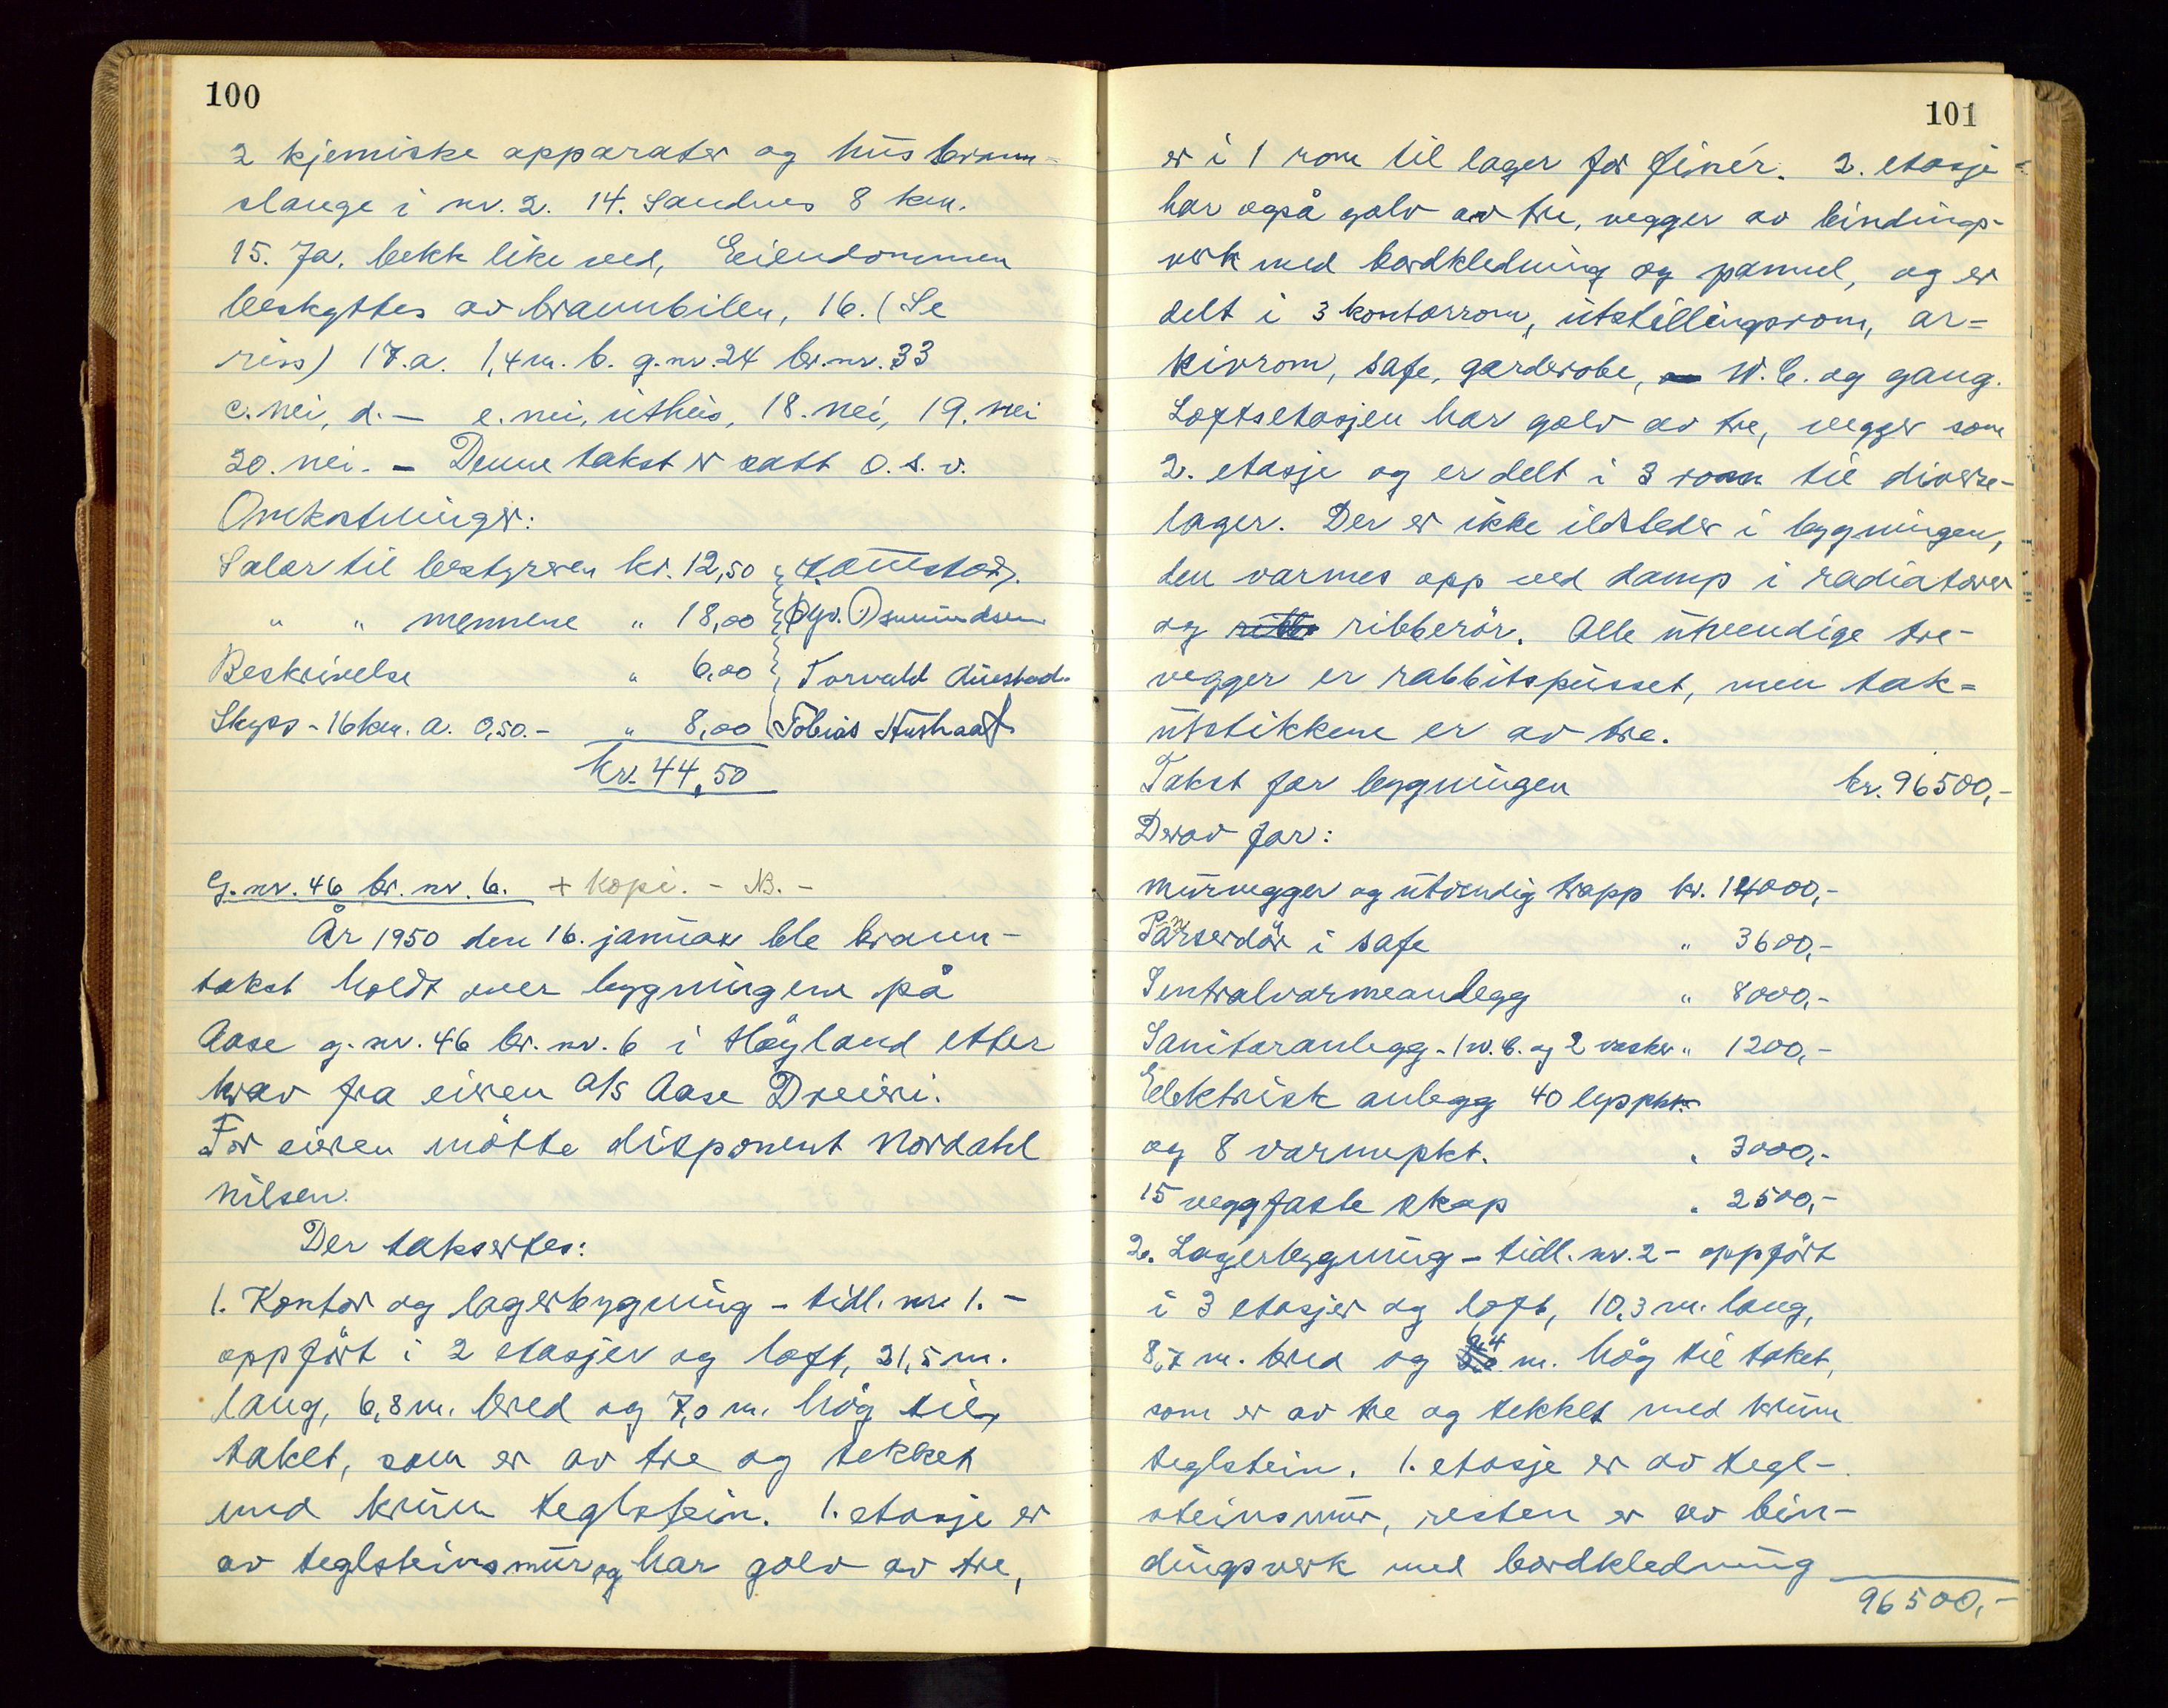 100
2 kjemiske apparater og husbrann-
slange i nr. 2. 14. Sandnes 8 km.
15. Ja, bekk like ved, Eiendommen
beskyttes av brannbilen, 16. (Se
riss) 17.a. 1,4 m. b. g.nr. 24 br.nr. 33
c. nei, d. — e. nei, uthus, 18. nei, 19. nei
20. nei. — Denne takst er satt o.s.v.
Omkostninger:
Salær til bestyreren kr. 12,50
" " mennene " 18,00 Asmundsen
Beskrivelse " 6,00 Torvald Auestad
Skyss - 16 km. a. 0,50.- " 8,00 Tobias
kr. 44,50
G.nr. 46 br. nr. 6. + Kopi. - NB. -
År 1950 den 16. januar ble brann-
takst holdt over bygningene på
Aase g.nr. 46 br. nr. 6 i Høyland etter
krav fra eieren A/S Aase Dreieri.
For eieren møtte disponent Nordahl
Nilsen.
Der taksertes:
1. Kontor og lagerbygning - tidl. nr. 1. -
oppført i 2 etasjer og loft, 31,5 m.
lang, 6,8 m. bred og 7,0 m. høg til
taket, som er av tre og tekket
med krum teglstein. 1. etasje er
av teglsteinsmur og har golv av tre,
101
er i 1 rom til lager for finér. 2. etasje
har også golv av tre, vegger av bindings-
verk med bordkledning og pannel, og er
delt i 3 kontorrom, utstillingsrom, ar=
kivrom, safe, garderobe, W.C. og gang.
Loftsetasjen har golv av tre, vegger som
2. etasje og er delt i 3 rom til diverse-
lager. Der er ikke ildsteder i bygningen,
den varmes opp ved damp i radiatorer
og ribberör. Alle utvendige tre-
vegger er rabbitspusset, men tak=
utstikkene er av tre.
Takst for bygningen kr. 96500,-
Derav for:
murvegger og utvendig trapp kr. 14000,-
Panserdör i safe " 3600,-
Sentralvarmeanlegg " 8000,-
Sanitæranlegg - 1 w.c. og 2 vasker " 1200,-
Elektrisk anlegg 40 lyspkt.
og 8 varmepkt. " 3000,-
15 veggfaste skap " 2500,-
2. Lagerbygning - tidl. nr. 2 - oppfört
i 3 etasjer og loft, 10,3 m. lang,
8,7 m. bred og 9,4 m. høg til taket,
som er av tre og tekket med krum
teglstein. 1. etasje er av tegl-
steinsmur, resten er av bin-
dingsverk med bordkledning
96500,-